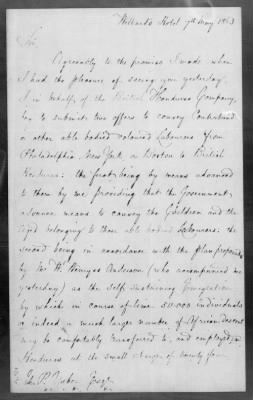 Willards Hotel 7th May 1863
Sir,
Agreeably to the promise I made when
I had the pleasure of seeing you yesterday,
I in behalf of the British Honduras Company,
beg to submit two offers to convey Contraband
or other able bodied coloured Labourers from
Philadelphia New York, or Boston to British
Honduras: the first being by means advanced
to them by me providing that the Government
advance means to convey the Children and the
aged belonging to these able bodied Labourers: the
second being in accordance with the plan proposed
by Mr
Anderson (who accompanied me
yesterday) as the Self-Sustaining Emigration
by which in course of time 50.000 individuals
or indeed a much larger number of African descent
may be comfortably transferred to, and employed in
Honduras at the small charge of twenty five
J. P. Usher Esqr.